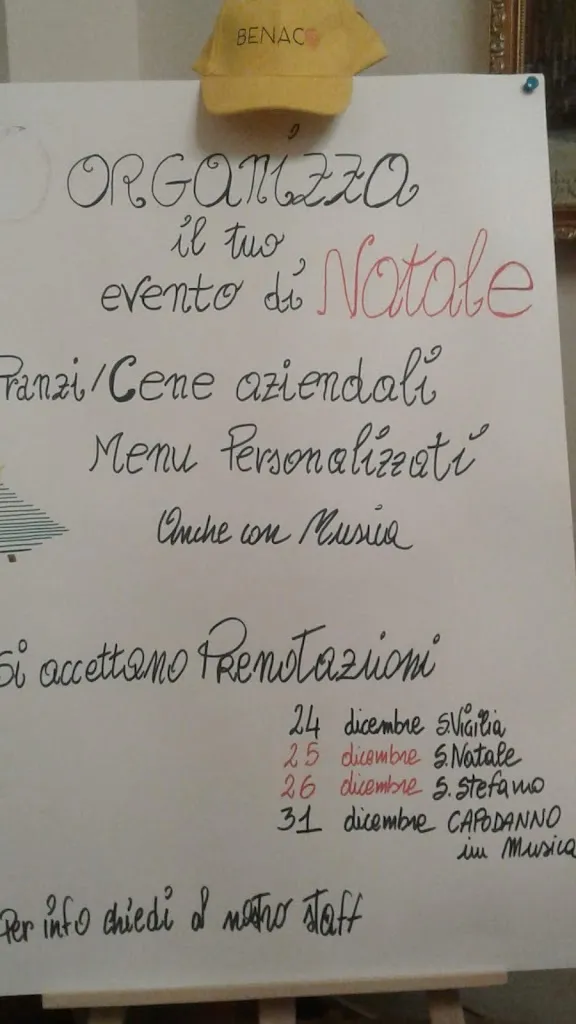 BENACO
ORGANIZZA
il tuo
evento di Natale
Pranzi/Cene aziendali
Menu Personalizzati
Anche con Musica
Si accettano Prenotazioni
24 dicembre S.Vigilia
25 dicembre S.Natale
26 dicembre S.Stefano
31 dicembre CAPODANNO
in Musica
Per info chiedi al nostro staff